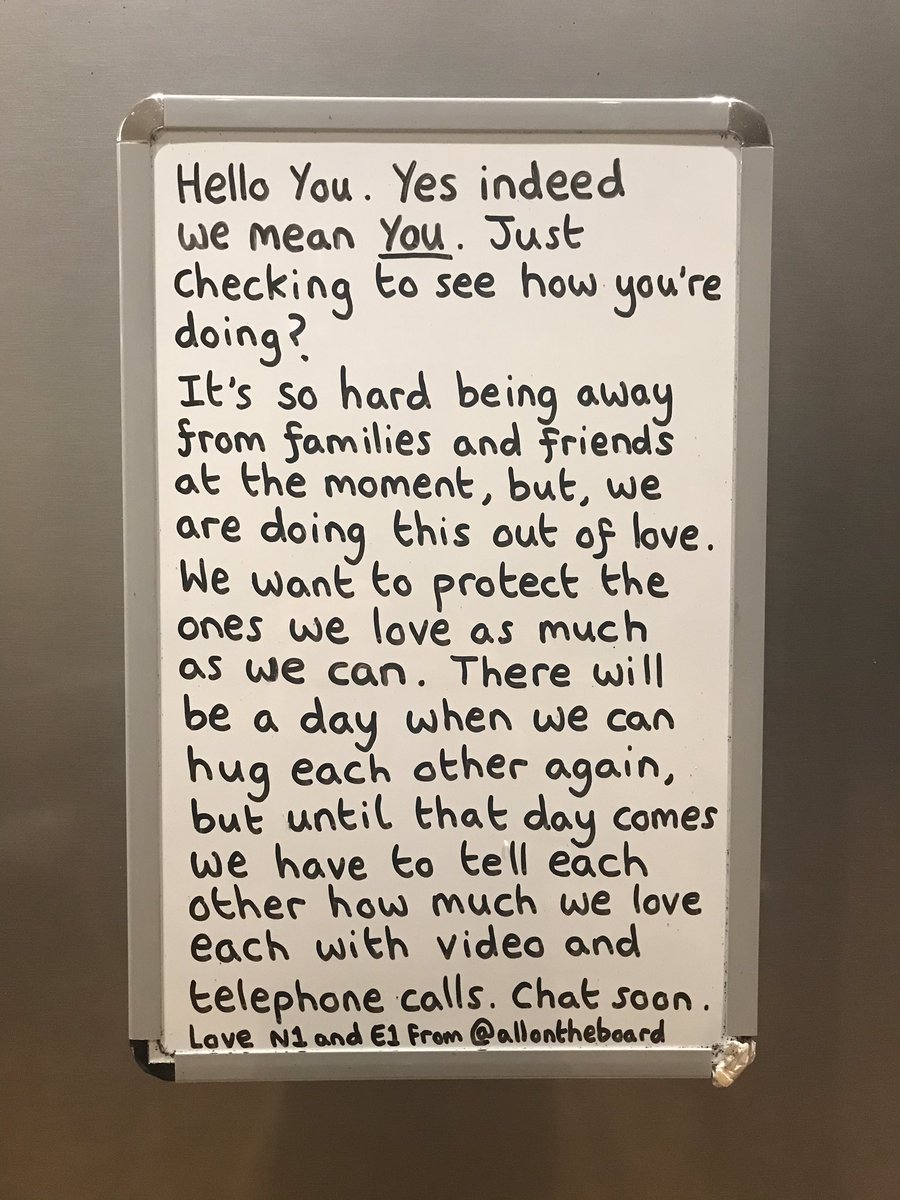 Hello You. Yes indeed
we mean You. Just
checking to see how you're
doing?
It's so hard being away
from families and friends
at the moment, but, we
are doing this out of love.
We want to protect the
ones we love as much
as we can. There will
be a day when we can
hug each other again,
but until that day comes
we have to tell each
other how much we love
each with video and
telephone calls. Chat soon.
Love N1 and E1 From @allontheboard